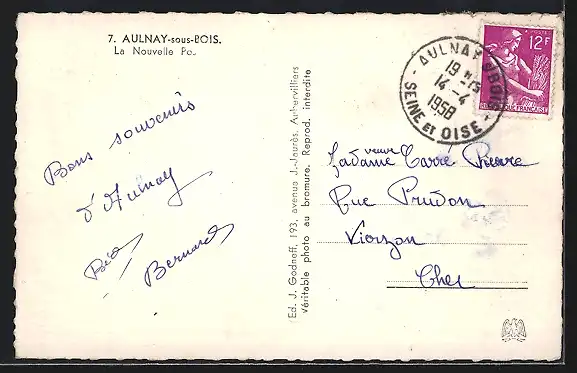 7. AULNAY-sous-BOIS.
La Nouvelle Po
Bons souvenirs
d'Aulnay
Béa
Bernard
Ed. J. Godneff, 193, avenue J.-Jaurès, Aubervilliers
Véritable photo au bromure. Reprod. interdite
AULNAY S BOIS
19 H
14-4
1958
SEINE et OISE
POSTES
12F
RÉPUBLIQUE FRANÇAISE
veuve
Madame Carré Pierre
Rue Prudon
Vierzon
Cher